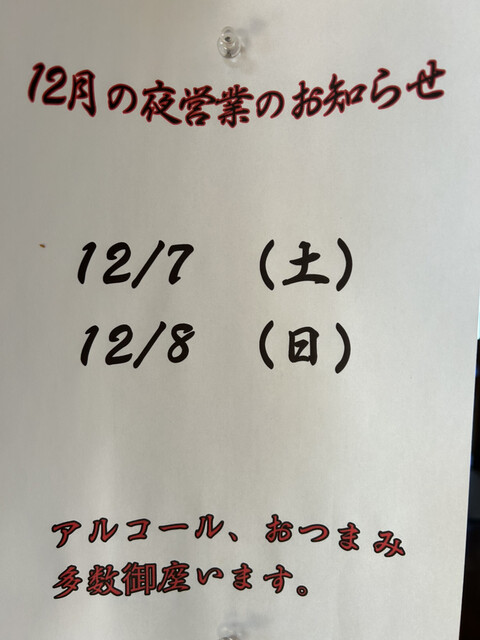 12月の夜営業のお知らせ
12/7 （土）
12/8 （日）
アルコール、おつまみ
多数御座います。